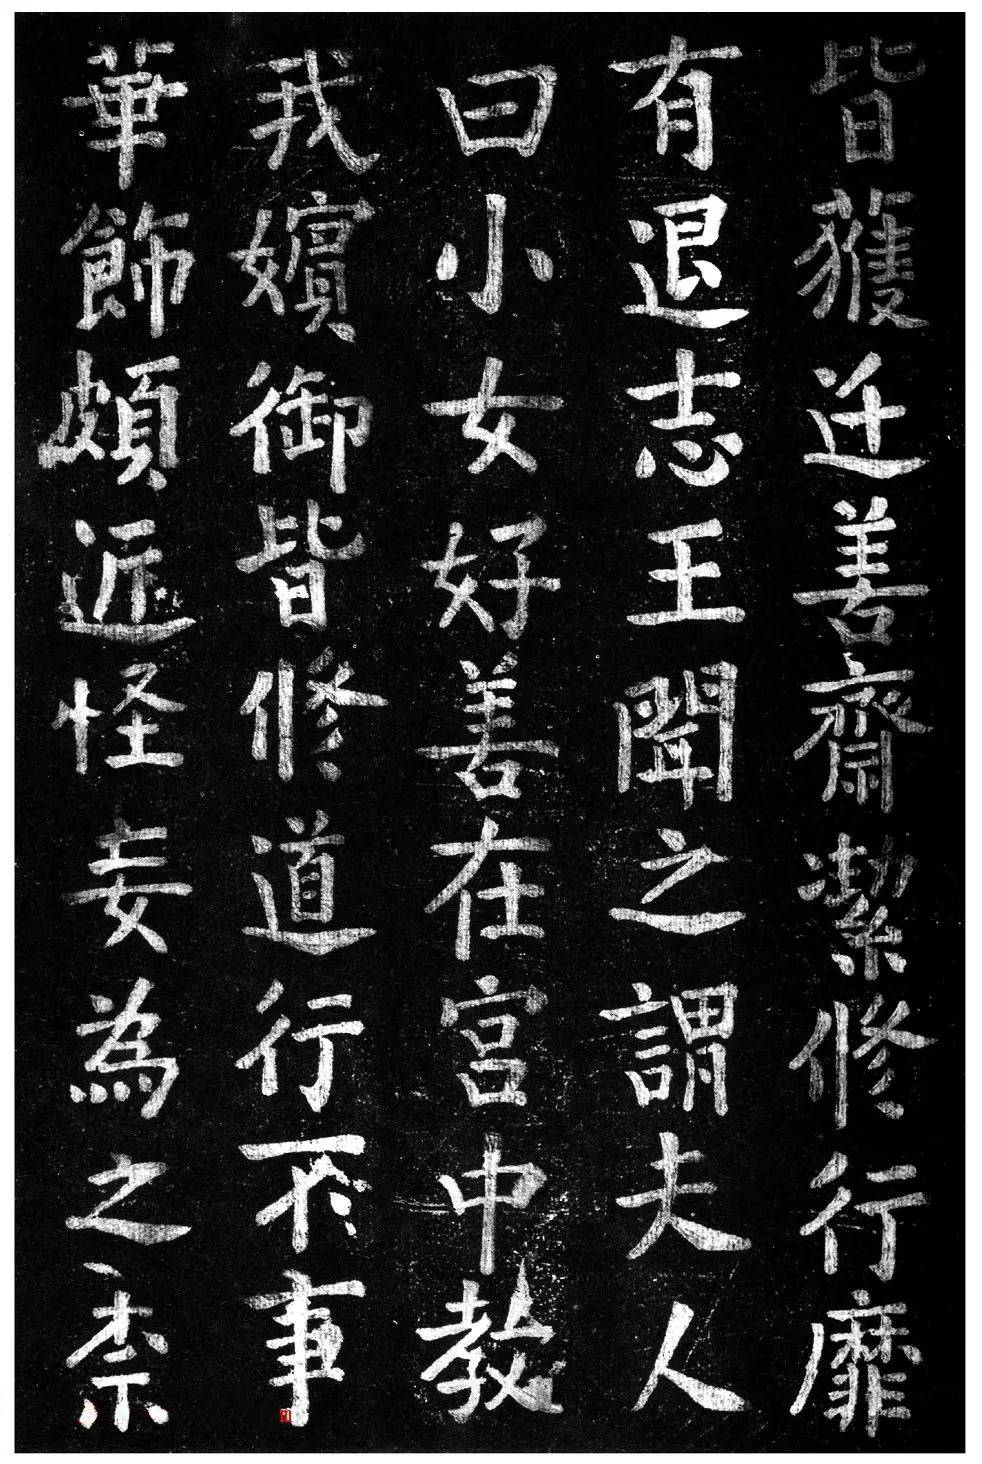 皆獲迁善齋潔修行靡
有退志王聞之謂夫人
曰小女好善在宮中教
我嬪御皆修道行不事
華飾頗近怪妄為之柰